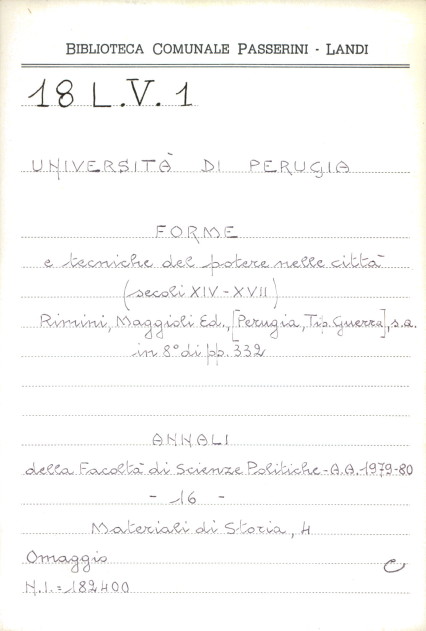 BIBLIOTECA COMUNALE PASSERINI - LANDI
18 L.V. 1
UNIVERSITÀ DI PERUGIA
FORME
e tecniche del potere nelle città
(secoli XIV - XVII)
Rimini, Maggioli Ed., [Perugia, Tip. Guerra], s.a.
in 8° di pp. 332
ANNALI
della Facoltà di Scienze Politiche - A.A. 1979-80
- 16 -
Materiali di Storia, 4
Omaggio
e
N.I. = 182400